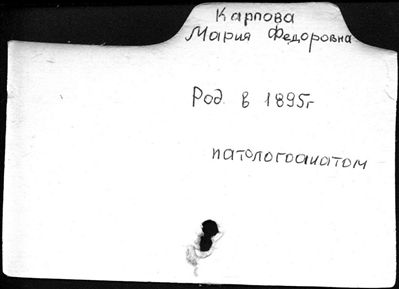 Карпова
Мария Федоровна
Род. в 1895г
патологоанатом